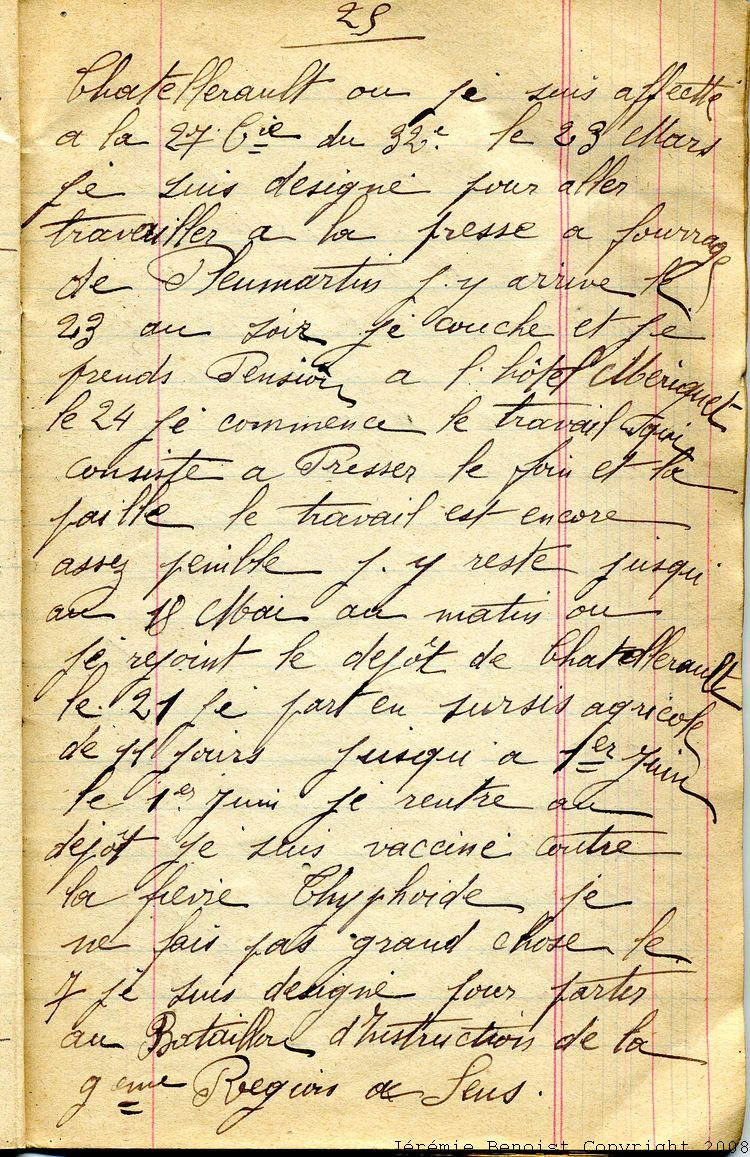 25
Chatellerault ou je suis affecté
a la 27. Cie du 32e. le 23 Mars
je suis designé pour aller
travailler a la presse a fourrage
de Pleumartin j.y arrive le
23 au soir je couche et je
prends Pension a l'hôtel Mériguet
le 24 je commence le travail qui
consiste a Presser le foin et la
paille le travail est encore
assez penible j.y reste jusqu
au 18 Mai au matin ou
je rejoint le depôt de Chatellerault
le 21 je part en sursis agricole
de 11 jours jusqu a 1er Juin
le 1er Juin je rentre au
depôt je suis vacciné contre
la fievre Thyphoïde je
ne fais pas grand chose le
7 je suis designé pour partir
au Bataillon d'Instruction de la
9eme Region a Sens.
Jérémie Benoist Copyright 2008